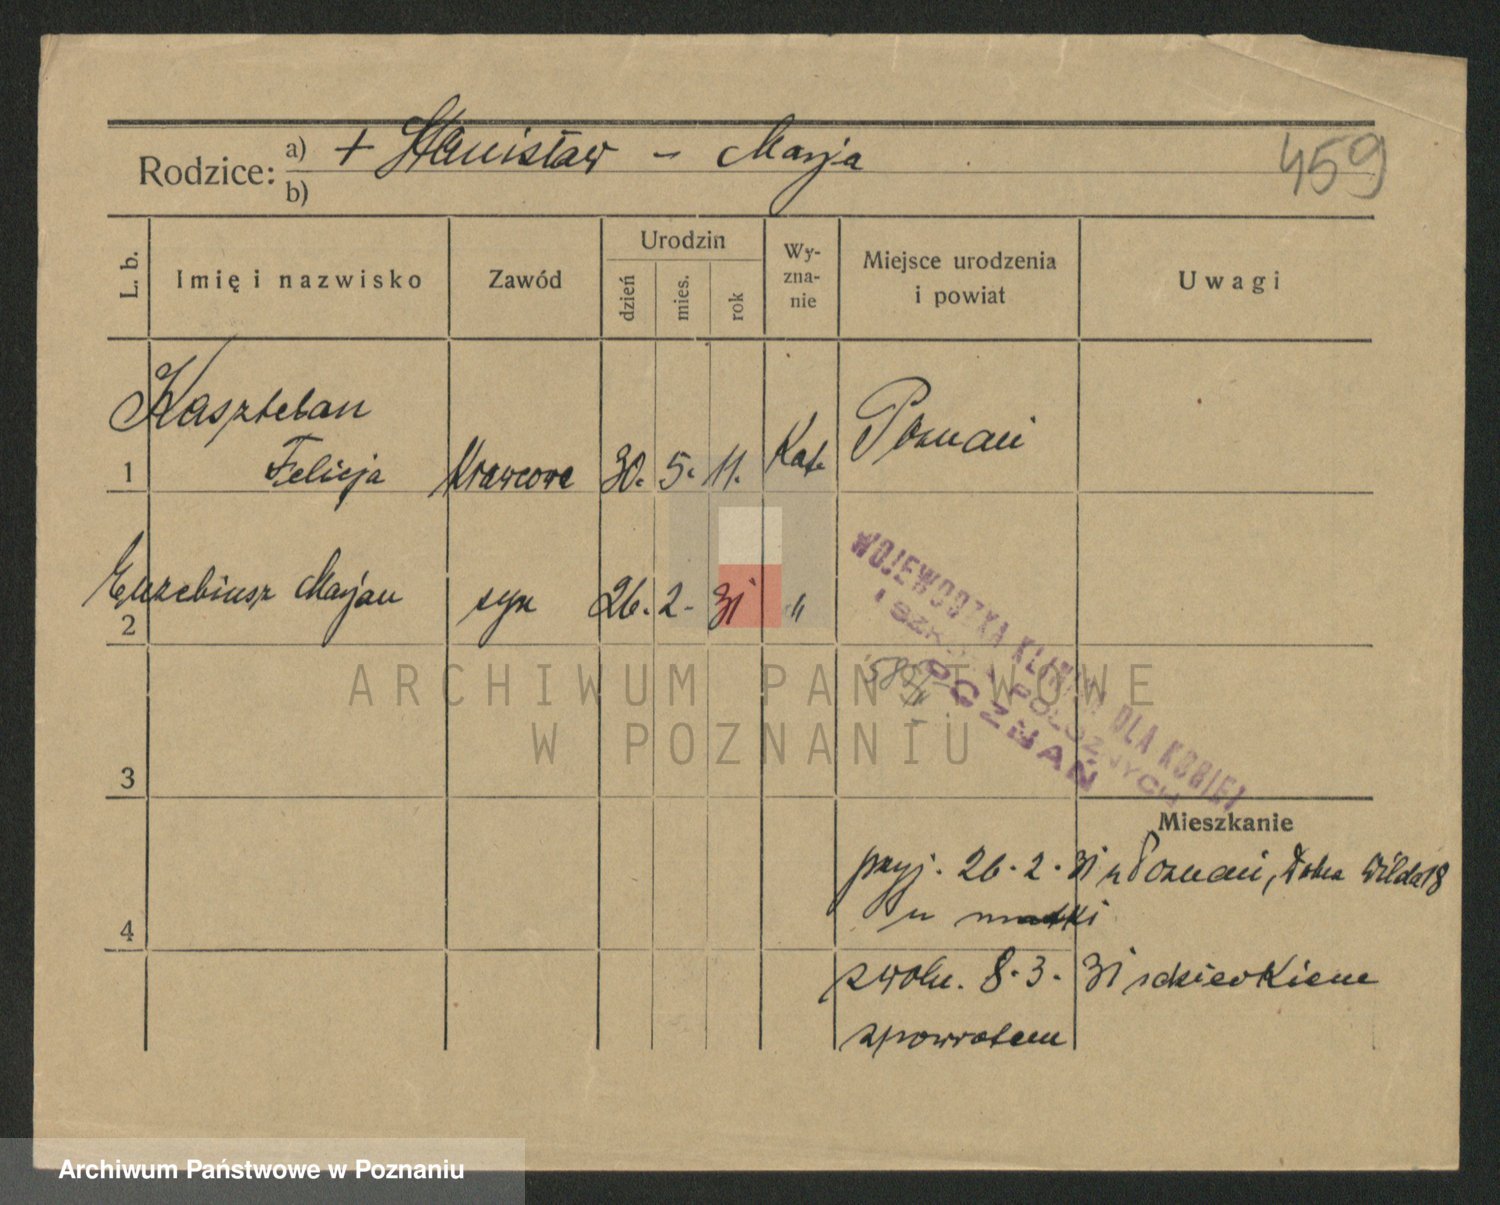 459
Rodzice: a) + Stanisław – Marja
b)
L. b.
Imię i nazwisko
Zawód
Urodzin
dzień
mies.
rok
Wy-
zna-
nie
Miejsce urodzenia
i powiat
Uwagi
Kasztelan
1 Felicja Krawcowa 30. 5. 11. Kat. Poznań
Euzebiusz Marjan syn 26. 2. 31 "
2
WOJEWÓDZKA KLINIKA DLA KOBIET
I SZKOŁA POŁOŻNYCH
POZNAŃ
ARCHIWUM PAŃSTWOWE
W POZNANIU
3
Mieszkanie
przyj. 26. 2. 31 z Poznań, Wilda 18
u matki
4
zwoln. 8. 3. 31 z dzieckiem
zpowrotem
Archiwum Państwowe w Poznaniu